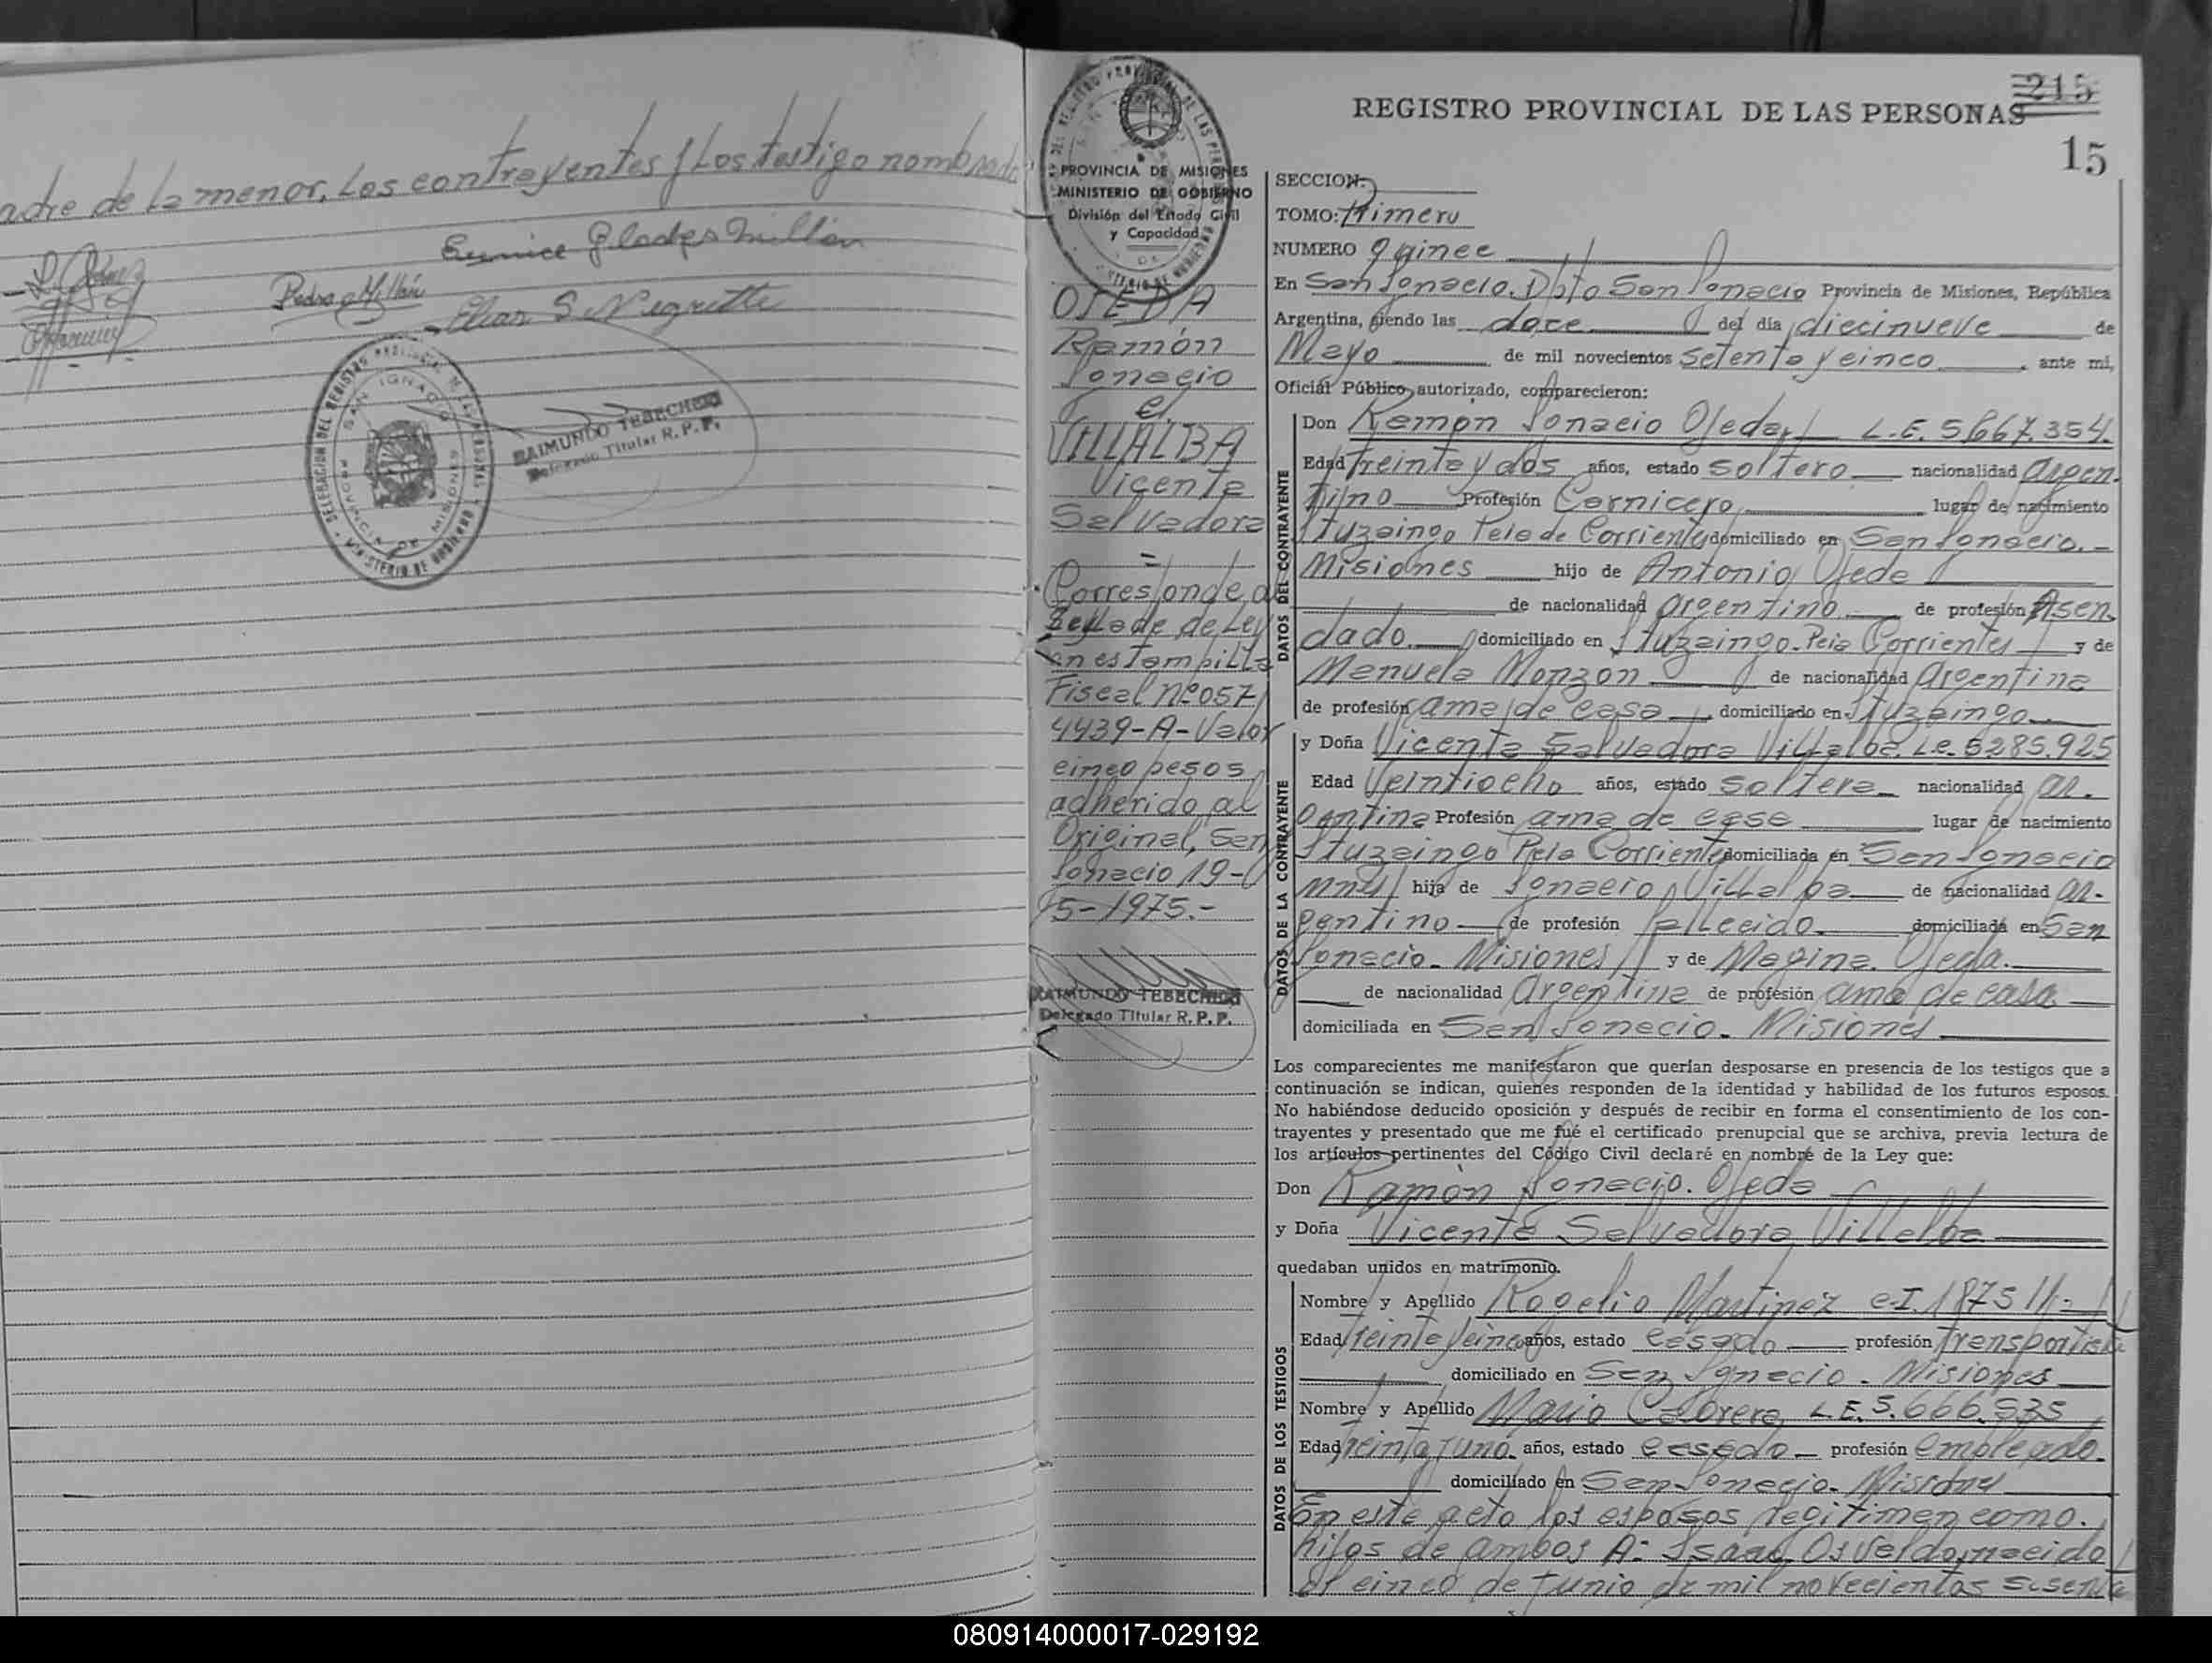 adre de la menor, Los contrayentes y Los testigo nombrado
Eunice Gladys Millán
Pedro Millán
Elian S Negrette
DELEGACION DEL REGISTRO PROVINCIAL DE LAS PERSONAS
MINISTERIO DE GOBIERNO
SAN IGNACIO
PROVINCIA DE MISIONES
RAIMUNDO TEBECHERI
Delegado Titular R. P. P.
PROVINCIA DE MISIONES
MINISTERIO DE GOBIERNO
División del Estado Civil
y Capacidad
OJEDA
Ramón
Ignacio
c/.
VILLALBA
Vicenta
Salvadora
=
Corresponde al
Sellado de Ley
en estampilla
Fiscal Nº 057
4439-A-Valor
cinco pesos
adherido al
Original, San
Ignacio 19-
5-1975.-
RAIMUNDO TEBECHERI
Delegado Titular R. P. P.
215
REGISTRO PROVINCIAL DE LAS PERSONAS
15
SECCION:
TOMO: Primero
NUMERO quince
En San Ignacio. Dpto San Ignacio Provincia de Misiones, República
Argentina, siendo las doce del día diecinueve de
Mayo de mil novecientos setenta y cinco, ante mi,
Oficial Público autorizado, comparecieron:
DATOS DEL CONTRAYENTE
Don Ramón Ignacio Ojeda L.E. 5.667.354.
Edad treinta y dos años, estado soltero nacionalidad Argen.
tino Profesión Carnicero lugar de nacimiento
Ituzaingo Pcia de Corrientes domiciliado en San Ignacio.-
Misiones hijo de Antonio Ojeda
de nacionalidad argentino de profesión Asen.
dado. domiciliado en Ituzaingo. Pcia Corrientes y de
Manuela Monzon de nacionalidad Argentina
de profesión ama de casa domiciliado en Ituzaingo
DATOS DE LA CONTRAYENTE
y Doña Vicenta Salvadora Villalba. L.C. 5.285.925
Edad Veintiocho años, estado soltera nacionalidad ar.
gentina Profesión ama de casa lugar de nacimiento
Ituzaingo Pcia Corrientes domiciliada en San Ignacio
Mnes/ hija de Ignacio Villalba de nacionalidad ar-
gentino de profesión fallecido domiciliada en San
Ignacio. Misiones y de Magina Ojeda.
de nacionalidad Argentina de profesión ama de casa
domiciliada en San Ignacio. Misiones
Los comparecientes me manifestaron que querían desposarse en presencia de los testigos que a
continuación se indican, quienes responden de la identidad y habilidad de los futuros esposos.
No habiéndose deducido oposición y después de recibir en forma el consentimiento de los con-
trayentes y presentado que me fué el certificado prenupcial que se archiva, previa lectura de
los artículos pertinentes del Código Civil declaré en nombre de la Ley que:
Don Ramón Ignacio. Ojeda
y Doña Vicenta Salvadora Villalba
quedaban unidos en matrimonio.
DATOS DE LOS TESTIGOS
Nombre y Apellido Rogelio Martinez C.I. 187511.-
Edad treinta y cinco años, estado casado profesión transportista
domiciliado en San Ignacio. Misiones
Nombre y Apellido Mario Cabrera L.E. 5.666.935
Edad treinta y uno. años, estado casado profesión empleado.
domiciliado en San Ignacio. Misiones
En este acto los esposos legitiman como.
hijos de ambos A: Isaac Osvaldo, nacido
el cinco de junio de mil novecientos sesenta
080914000017-029192